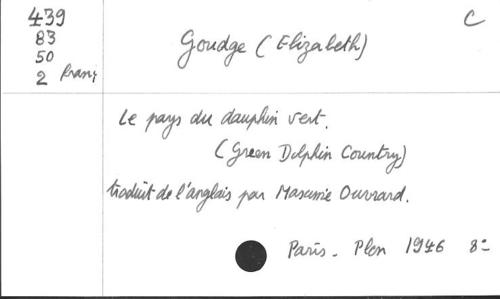 439
83
50
2 franç
C
Goudge (Elizabeth)
Le pays du dauphin vert.
(Green Dolphin Country)
traduit de l'anglais par Maxime Ouvrard.
Paris - Plon 1946 8°